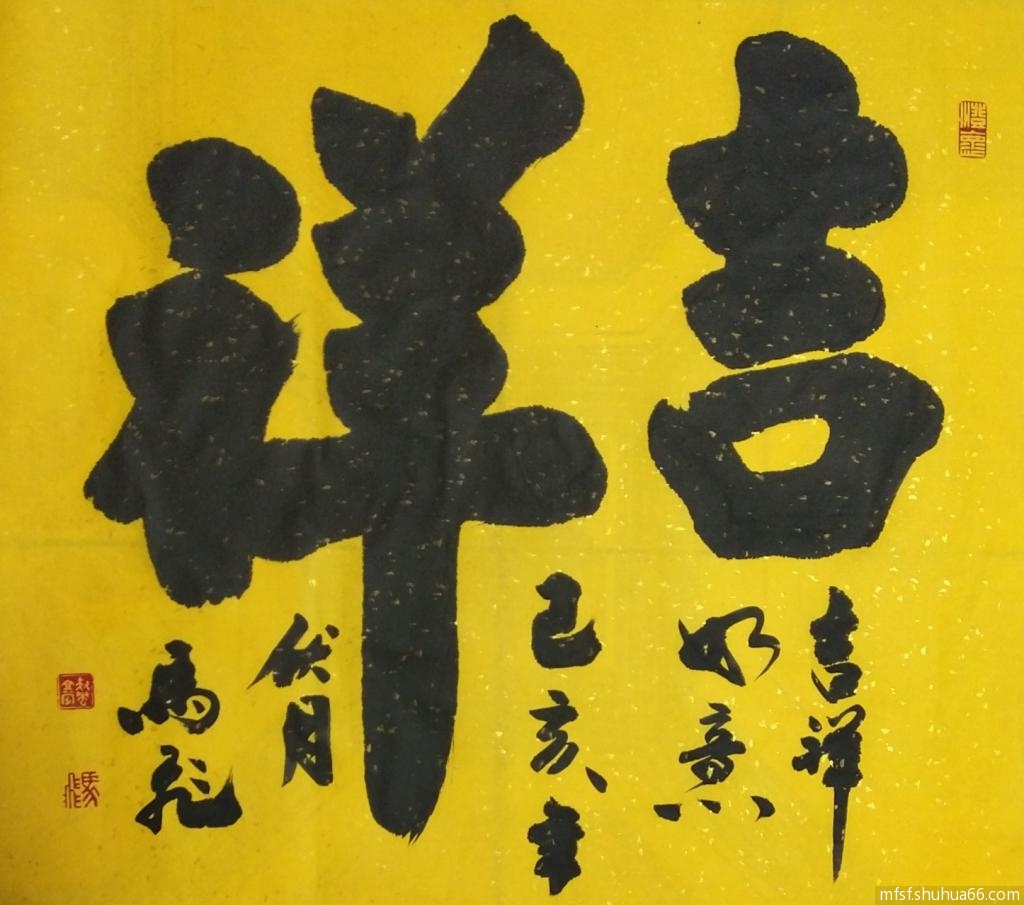 吉祥
吉祥
如意
己亥年
伏月
馬飛
mfsf.shuhua66.com